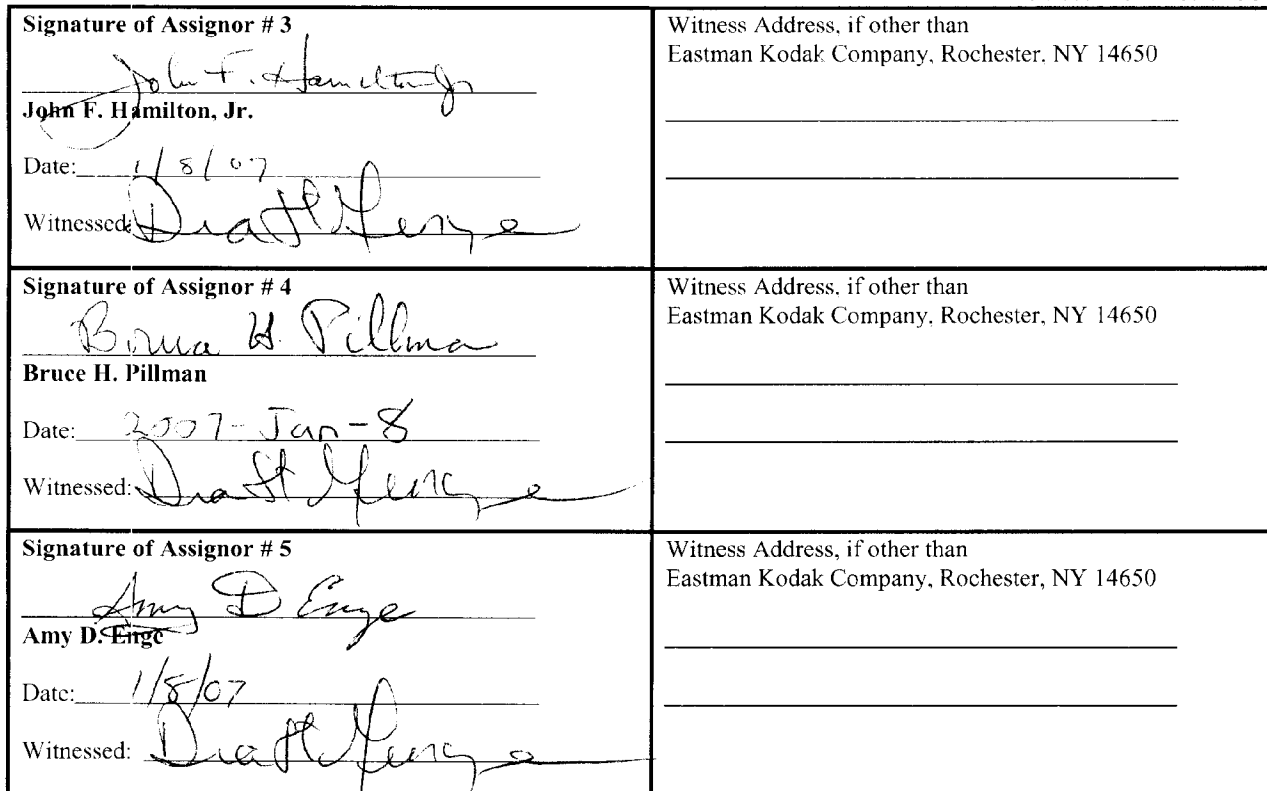 Signature of Assignor # 3
John F. Hamilton Jr
John F. Hamilton, Jr.
Date: 1/8/07
Witnessed:
Witness Address, if other than
Eastman Kodak Company, Rochester. NY 14650
Signature of Assignor # 4
Bruce H. Pillman
Bruce H. Pillman
Date: 2007-Jan-8
Witnessed:
Witness Address, if other than
Eastman Kodak Company, Rochester, NY 14650
Signature of Assignor # 5
Amy D Enge
Amy D. Enge
Date: 1/8/07
Witnessed:
Witness Address, if other than
Eastman Kodak Company, Rochester, NY 14650